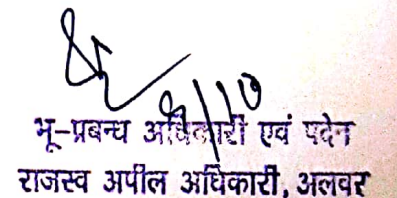 9/10
भू-प्रबन्ध अधिकारी एवं पदेन
राजस्व अपील अधिकारी, अलवर